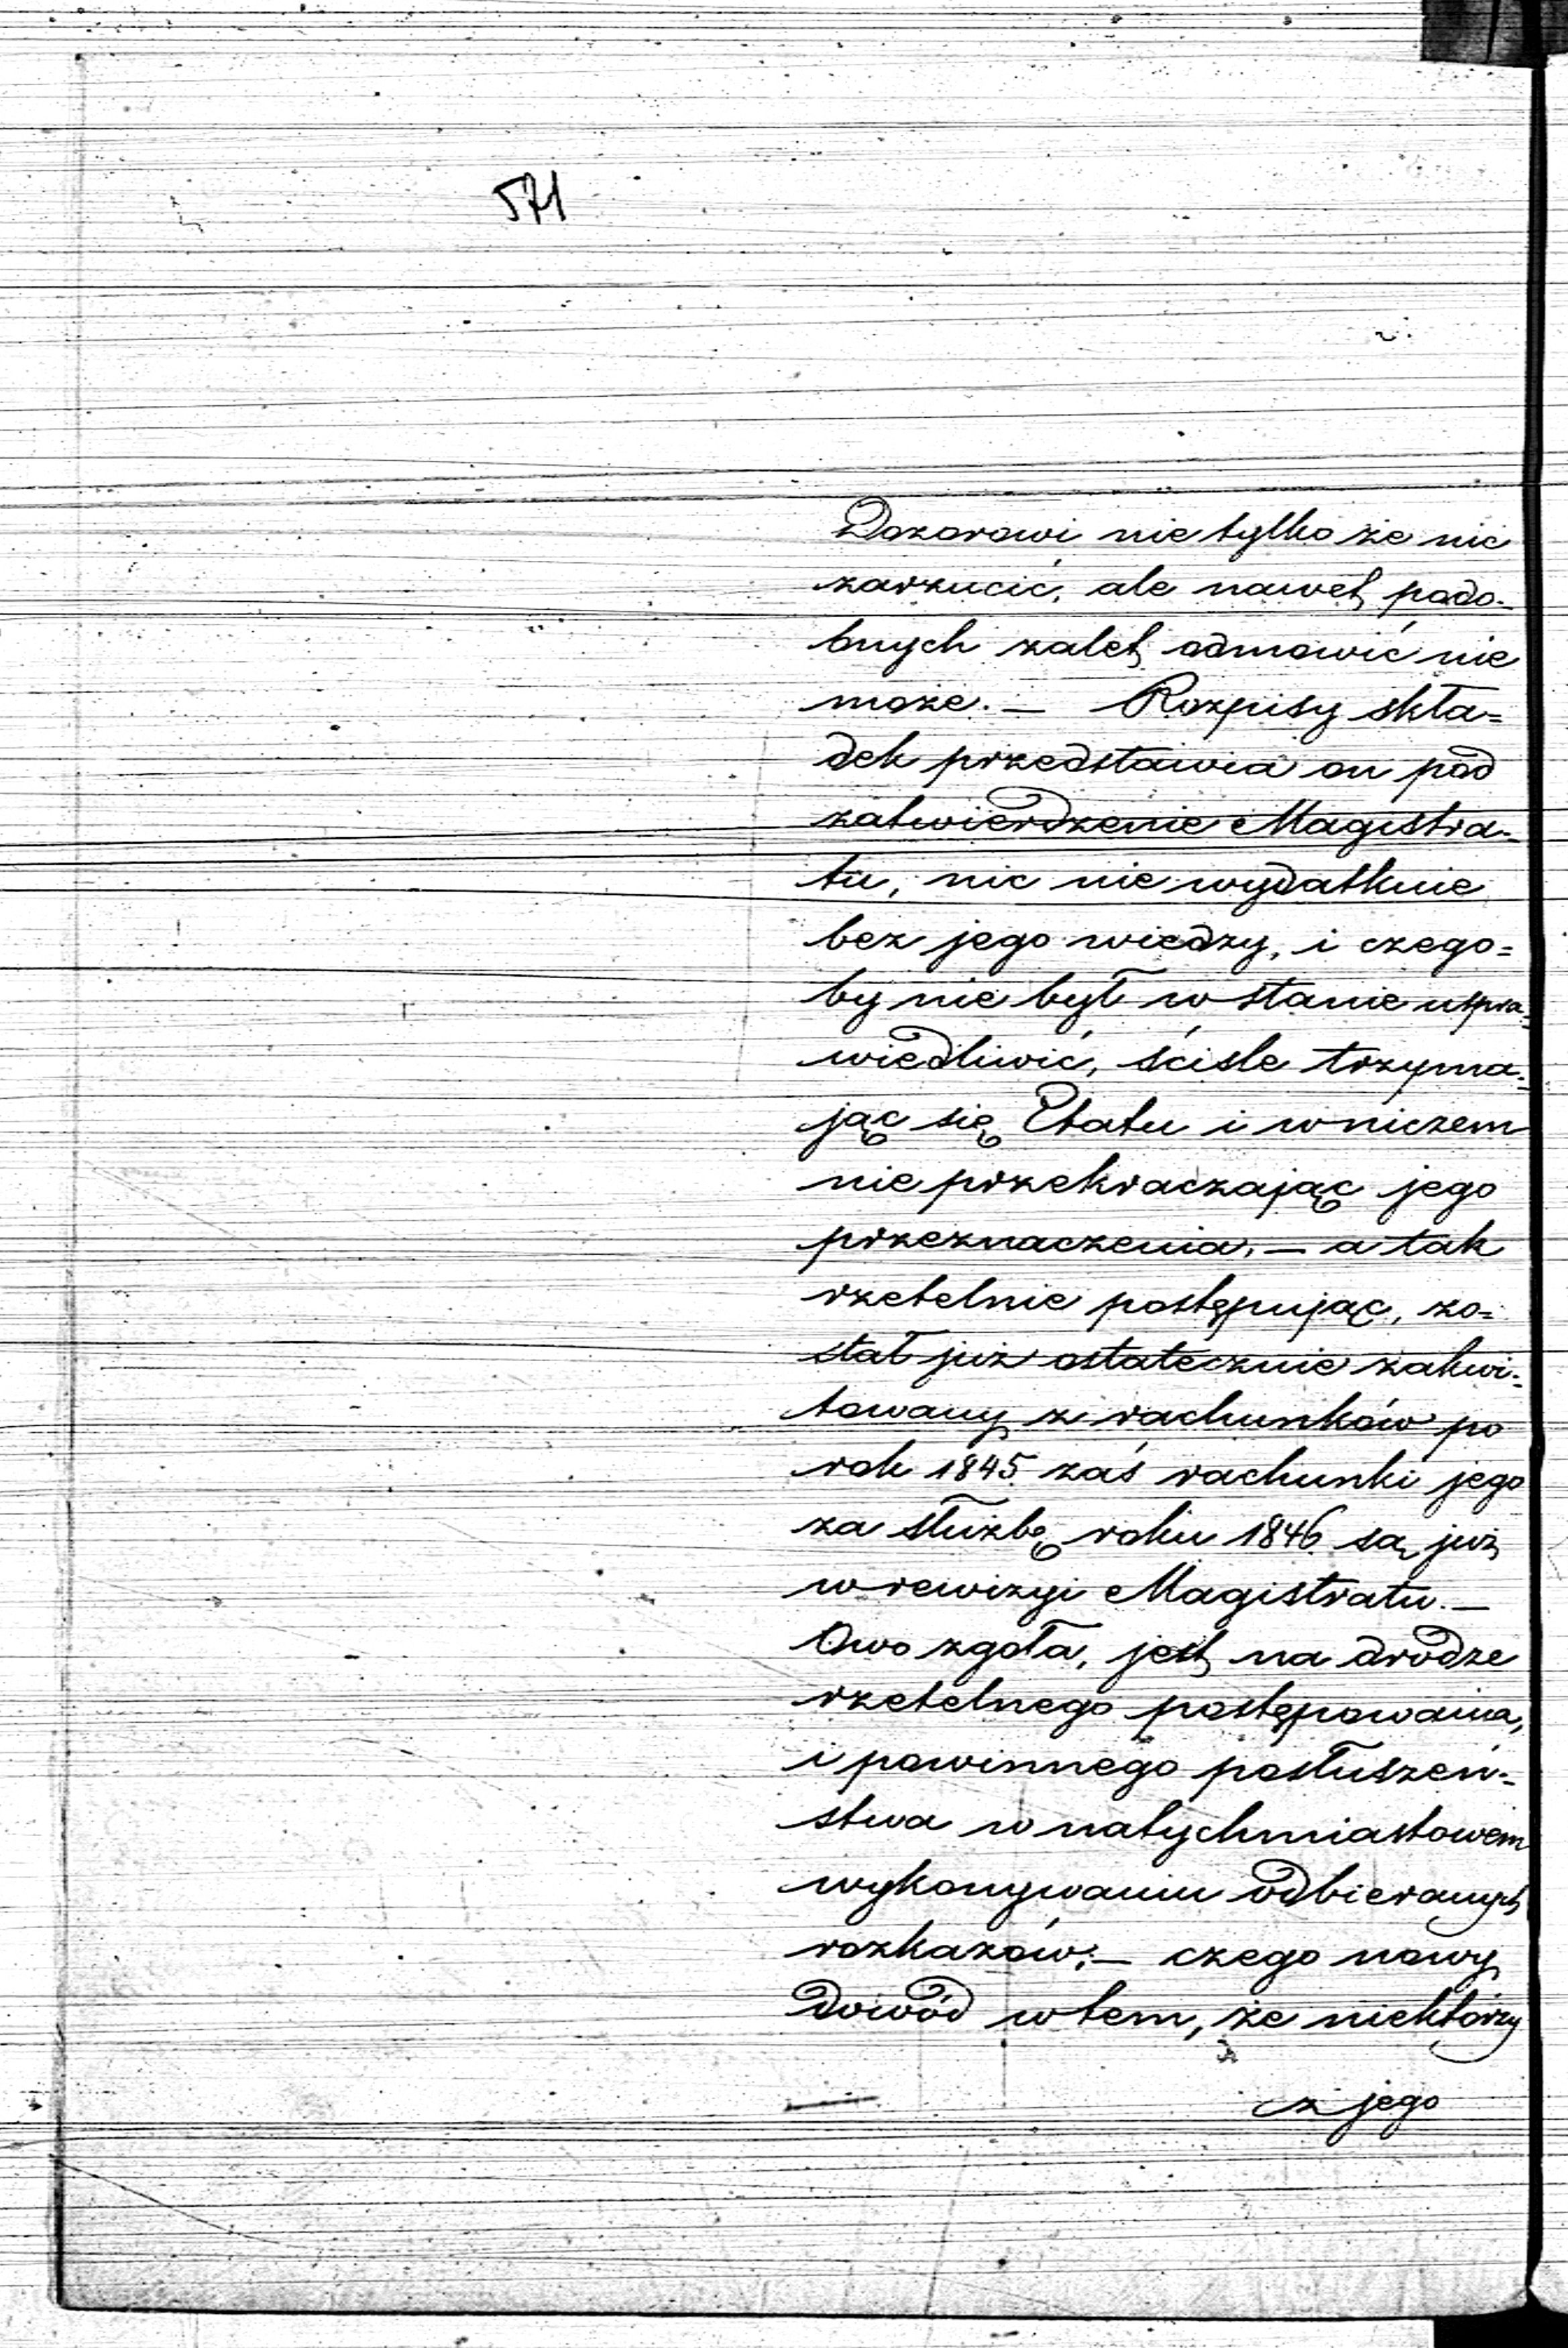 571
Dozorowi nie tylko że nic
zarzucić, ale nawet podo-
bnych zalet odmówić nie
może. — Rozpisy skła=
dek przedstawia on pod
zatwierdzenie Magistra-
tu, nic nie wydatkuie
bez jego wiedzy, i czego=
by nie był w stanie uspra=
wiedliwić, ściśle trzyma=
jąc się Etatu i w niczem
nie przekraczając jego
przeznaczenia, — a tak
rzetelnie postępując, zo=
stał już ostatecznie zakwi=
towany z rachunków po
rok 1845 zaś rachunki jego
za służbę roku 1846 są już
w rewizyi Magistratu. —
Owo zgoła, jest na drodze
rzetelnego postępowania,
i powinnego posłuszeń-
stwa w natychmiastowem
wykonywaniu odbieranych
rozkazów; — czego nowy
dowód w tem, że niektórzy
z jego